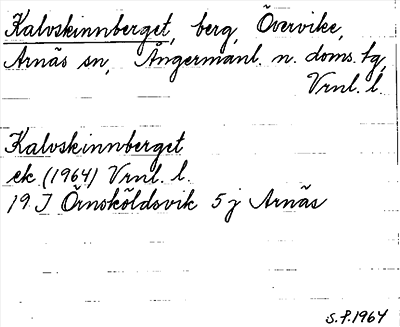 Kalvskinnberget, berg, Övervike,
Arnäs sn, Ångermanl. n. doms. tg,
Vrnl. l.
Kalvskinnberget
ek. (1964) Vrnl. l.
19 J Örnsköldsvik 5 j Arnäs
S.F. 1964